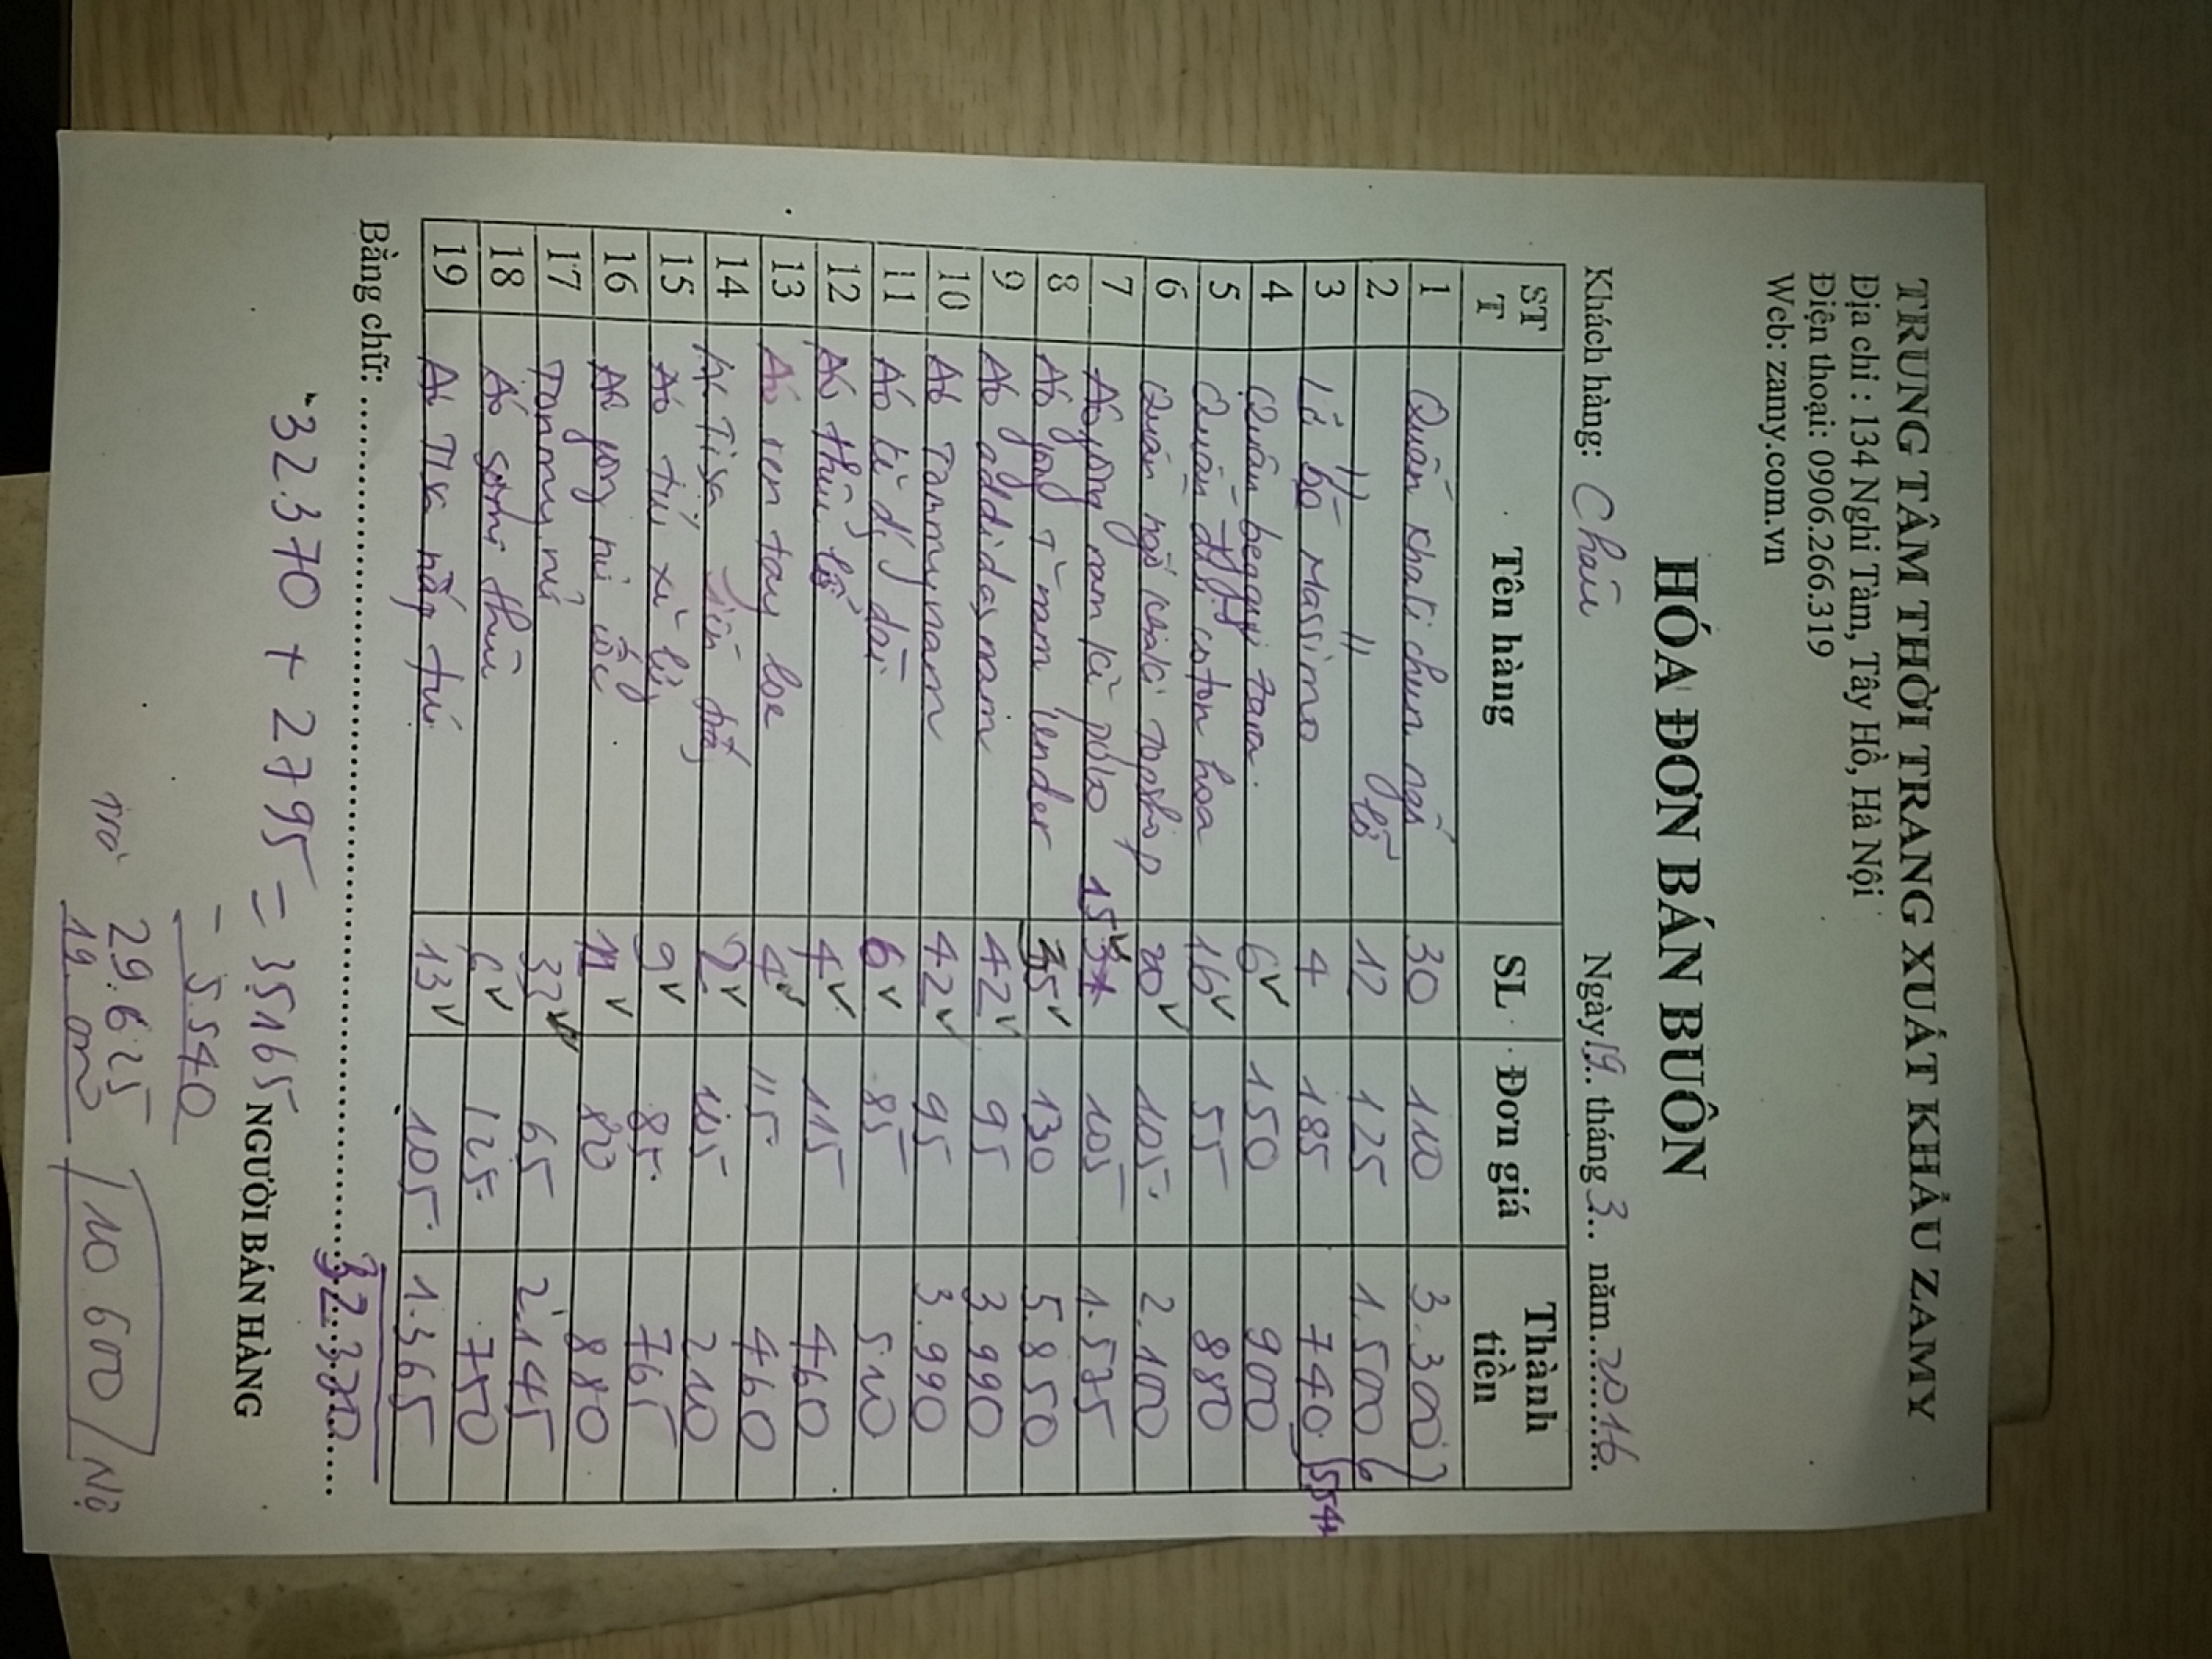 TRUNG TÂM THỜI TRANG XUẤT KHẨU ZAMY
Địa chỉ : 134 Nghi Tàm, Tây Hồ, Hà Nội
Điện thoại: 0906.266.319
Web: zamy.com.vn
HÓA ĐƠN BÁN BUÔN
Khách hàng: Châu Ngày 19 tháng 3 năm 2016
STT Tên hàng SL Đơn giá Thành tiền
1 Quần khaki chun ngố 30 110 3.300
2 " " lỡ 12 125 1.500
3 Massimo 4 185 740 554
4 Quần baggy 6 150 900
5 Quần coton hoa 16 55 880
6 Quần ngố khaki Topshop 20 105 2.100
7 Áo nam polo 15 105 1.575
8 Áo nam lender 45 130 5.850
9 Áo addidas nam 42 95 3.990
10 Áo Tommy nam 42 95 3.990
11 Áo dài 6 85 510
12 Áo thêu 4 115 460
13 Áo ren tay loe 4 115 460
14 2 105 210
15 Áo túi xẻ 9 85 765
16 Áo nữ 11 80 880
17 Tommy nữ 33 65 2.145
18 Áo sơmi thêu 6 125 750
19 Áo túi 13 105 1.365
Bằng chữ: 32.370
32.370 + 2795 = 35165
NGƯỜI BÁN HÀNG
- 5.540
29.625
trả 19.000 10.600 / Nợ